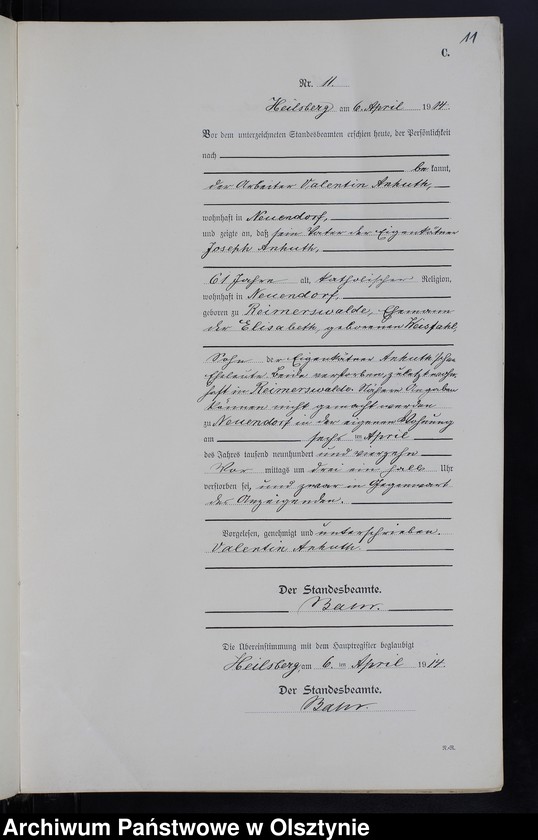 11
C.
Nr. 11.
Heilsberg am 6. April 1914.
Vor dem unterzeichneten Standesbeamten erschien heute, der Persönlichkeit
nach
be kannt,
der Arbeiter Valentin Anhuth,
wohnhaft in Neuendorf,
und zeigte an, daß sein Vater der Eigenkätner
Joseph Anhuth,
61 Jahre alt, katholischer Religion,
wohnhaft in Neuendorf,
geboren zu Reimerswalde, Ehemann
der Elisabeth, geborenen
Sohn der Eigenkätner Anhuth'schen
Eheleute. Beide verstorben, zuletzt wohn-
haft in Reimerswalde. Nähere Angaben
können nicht gemacht werden
zu Neuendorf in der eigenen Wohnung
am sechs ten April
des Jahres tausend neunhundert und vierzehn
Vor mittags um drei ein halb Uhr
verstorben sei, und zwar in Gegenwart
des Anzeigenden.
Vorgelesen, genehmigt und unterschrieben.
Valentin Anhuth
Der Standesbeamte.
Die Übereinstimmung mit dem Hauptregister beglaubigt
Heilsberg am 6. ten April 1914.
Der Standesbeamte.
Archiwum Państwowe w Olsztynie